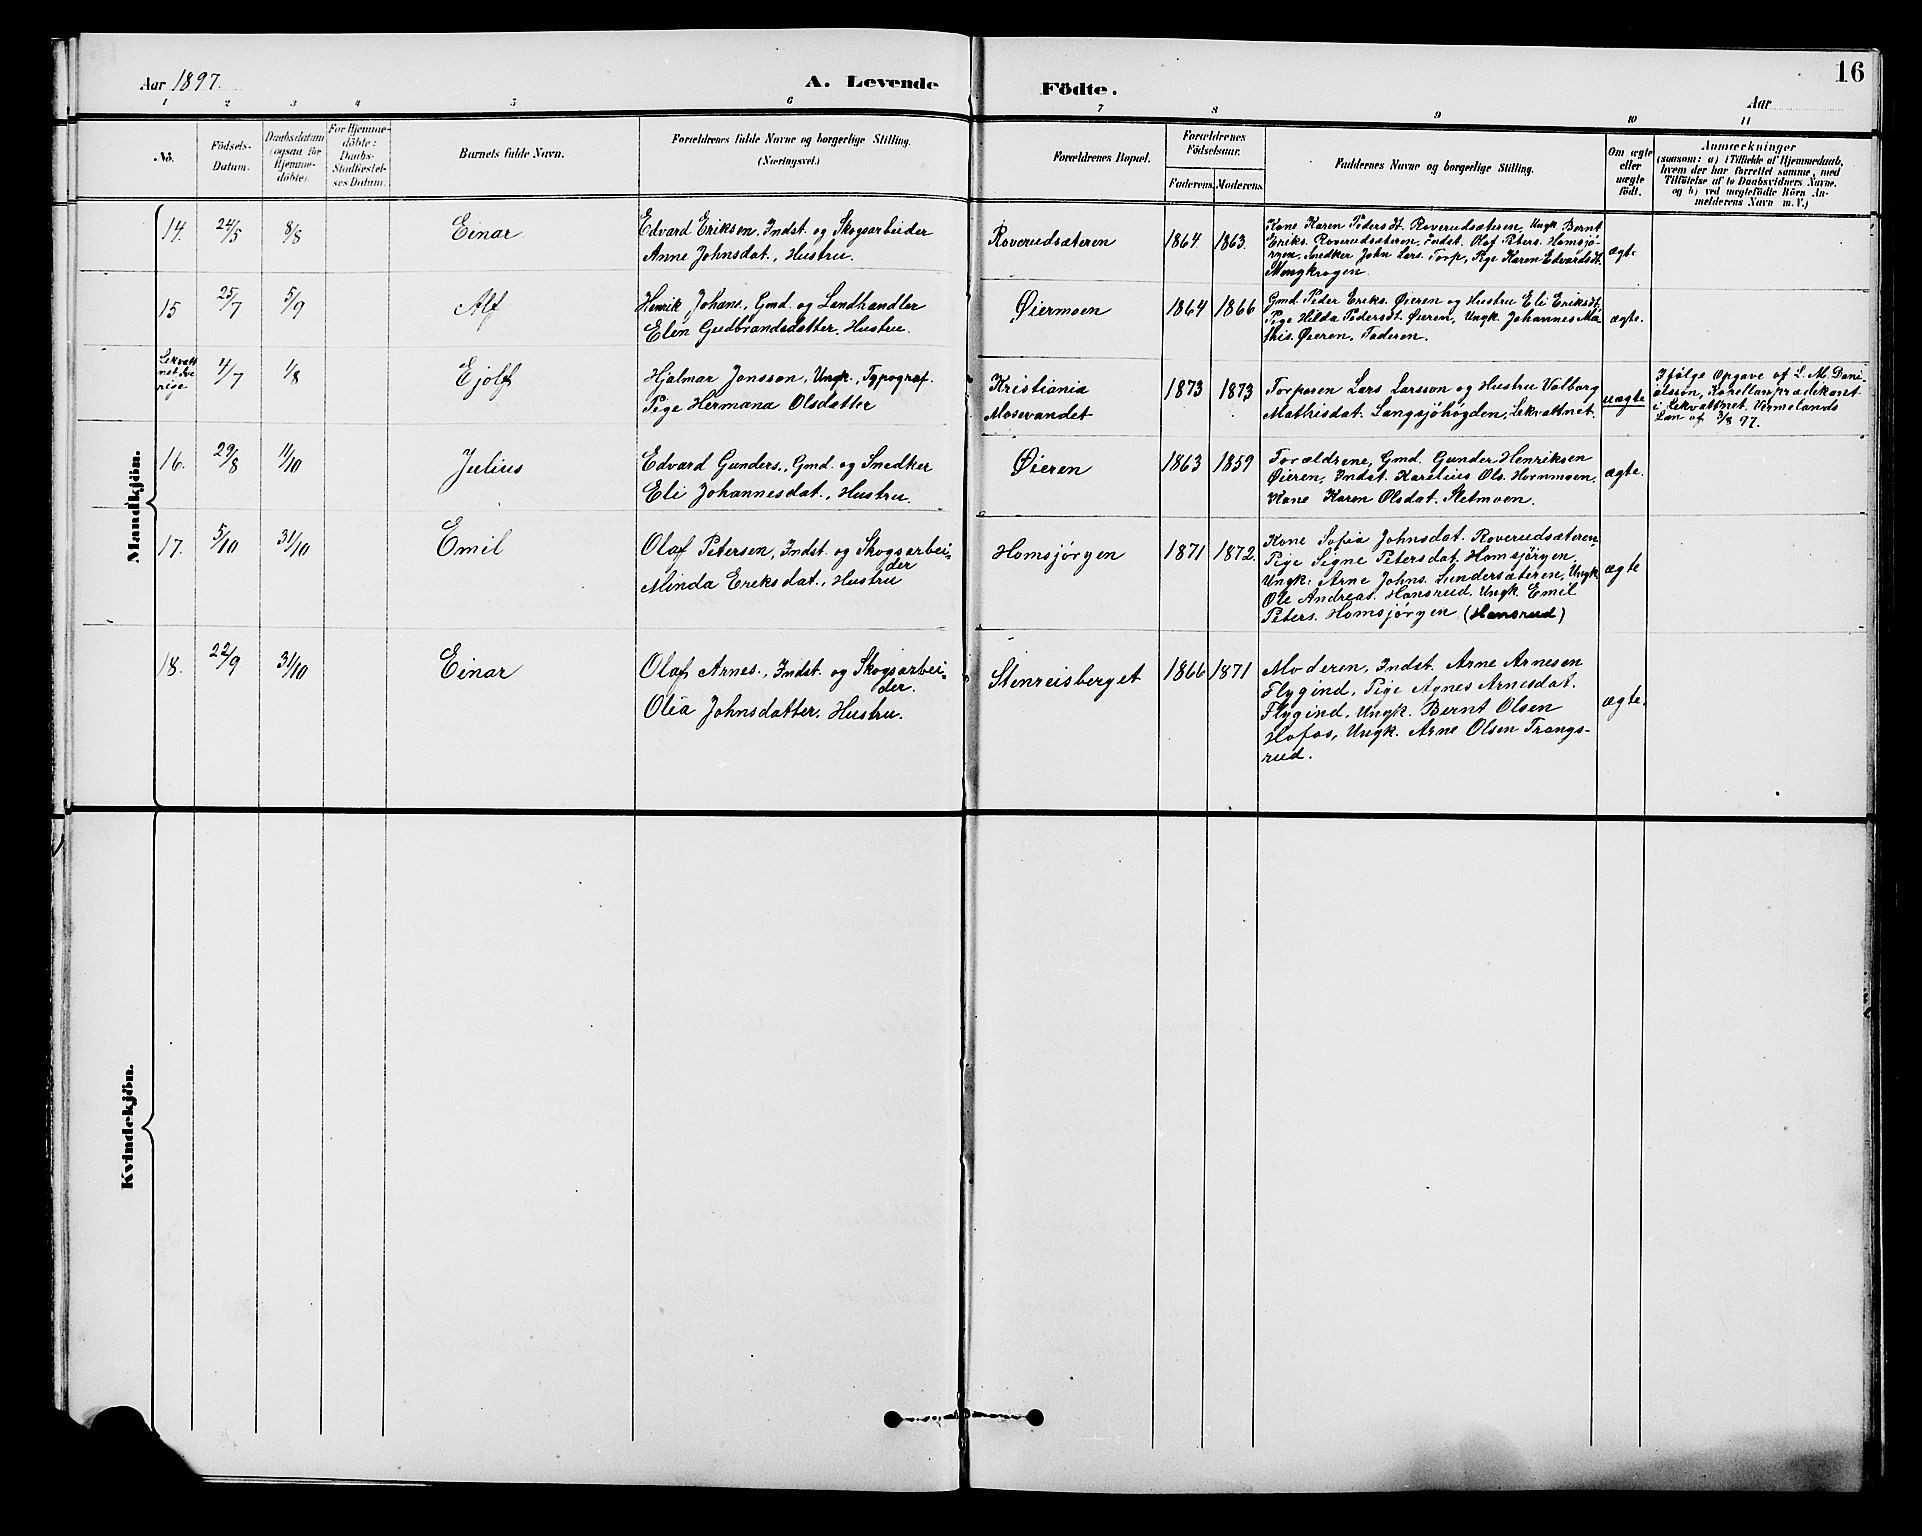 Aar 1897.
A. Levende
Födte.
16
Aar
1 2 3 4 5 6 7 8 9 10 11
No.
Födsels-
Datum.
Daabsdatum
(ogsaa for
Hjemme-
döbte).
For Hjemme-
döbte:
Daabs-
Stadfæstel-
ses Datum.
Barnets fulde Navn.
Forældrenes fulde Navne og borgerlige Stilling.
(Næringsvei.)
Forældrenes Bopæl.
Forældrenes
Födselsaar.
Faderens. Moderens.
Faddernes Navne og borgerlige Stilling.
Om ægte
eller
uægte
födt.
Anmærkninger
(saasom: a) i Tilfælde af Hjemmedaab,
hvem der har forrettet samme, med
Tilföielse af to Daabsvidners Navne,
og b) ved uægtefödte Börn An-
melderens Navn m. V.)
Mandkjön.
14. 24/5 8/8 Einar
Edvard Eriksen, Indst. og Skogsarbeider
Anne Johnsdat., Hustru.
Roverudsæteren 1864 1863.
Kone Karen Pedersdt. Roverudsæteren, Ungk Bernt
Eriks. Roverudsæteren, Indst. Olaf Peters. Homsjö-
rgen, Snedker John Lars. Torp, Pige Karen Edvardsdt.
Mengkrogen.
ægte
15 25/7 5/9 Alf
Henrik Johans., Gmd. og Landhandler
Elin Gudbrandsdatter, Hustru.
Øiermoen 1864 1866
Gmd. Peder Eriks. Øieren og Hustru Eli Eriksdt.
Pige Hilda Pedersdt. Øieren, Ungk. Johannes Ma-
this. Øieren, Faderen.
ægte.
Lekvatt
net Sve
rige
4/7 1/8 Ejolf
Hjalmar Jonsson, Ungk., Typograf.
Pige Hermana Olsdatter
Kristiania
Mosevandet
1873 1873
Torparen Lars Larsson og Hustru Valborg
Mathisdat. Langsjöhögden, Lekvattnet.
uægte
Ifölge Opgave af L. M. Dani-
elsson, Kapellanprædikant
i Lekvattnet, Vermelands
Län af 3/8 97.
16. 29/8 11/10 Julius
Edvard Gunders., Gmd. og Snedker
Eli Johannesdat., Hustru.
Øieren 1863 1859
Forældrene, Gmd. Gunder Henriksen
Øieren, Indst. Karelius Ols. Hornmoen,
Kone Karen Olsdat. Sletmoen.
ægte.
17. 5/10 31/10 Emil
Olaf Petersen, Indst. og Skogsarbei-
der
Minda Eriksdat., Hustru
Homsjörgen 1871 1872.
Kone Sofia Johnsdat. Roverudsæteren,
Pige Signe Petersdat. Homsjörgen,
Ungk: Arne Johns. Sundersæteren, Ungk
Ole Andreas. Hansrud, Ungk. Emil
Peters. Homsjörgen (Hansrud)
ægte
18. 22/9 31/10 Einar
Olaf Arnes., Indst. og Skogsarbei-
der.
Olia Johnsdatter, Hustru.
Stenreisberget 1866 1871
Moderen, Indst. Arne Arnesen
Flygind, Pige Agnes Arnesdat.
Flygind, Ungk. Bernt Olsen
Hofos, Ungk. Arne Olsen Trangs-
rud.
ægte.
Kvindekjön.